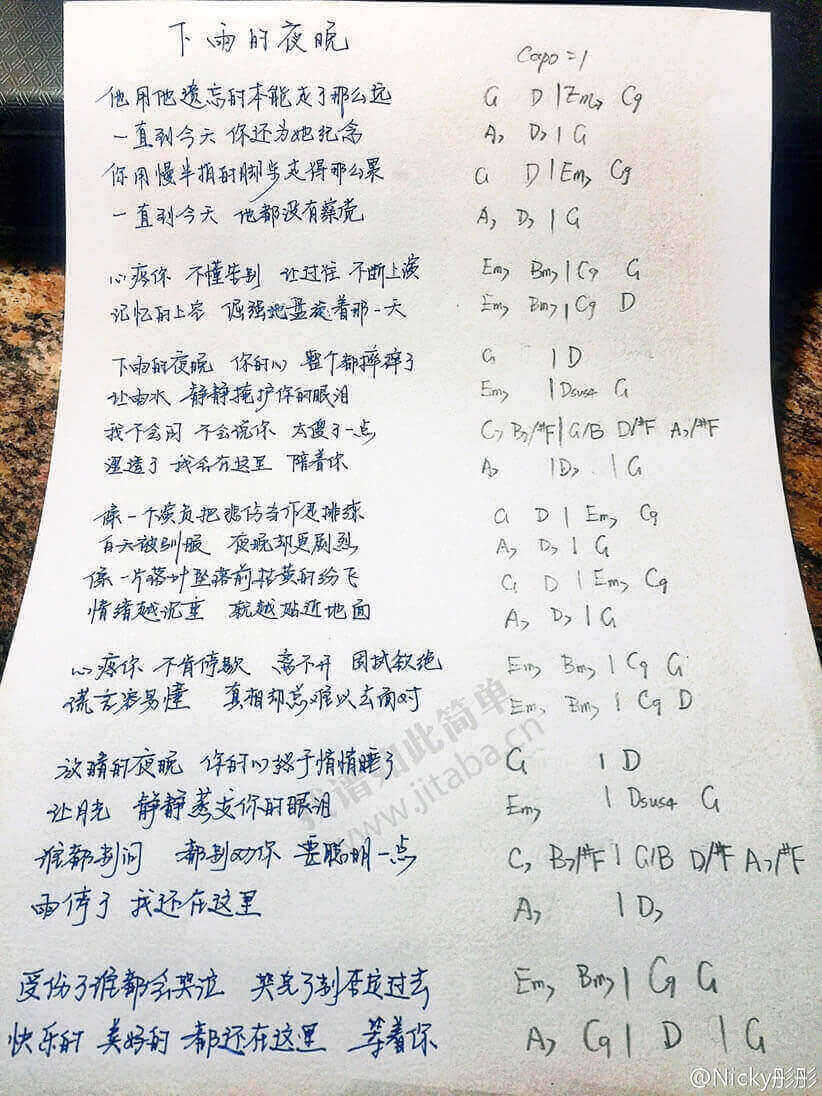 下雨的夜晚 Capo=1
他用他遗忘的本能走了那么远 G D | Em7 C9
一直到今天 你还为她纪念 A7 D7 | G
你用慢半拍的脚步走得那么累 G D | Em7 C9
一直到今天 他都没有察觉 A7 D7 | G
心疼你 不懂告别 让过往 不断上演 Em7 Bm7 | C9 G
记忆的上空 倔强地盘旋着那一天 Em7 Bm7 | C9 D
下雨的夜晚 你的心 整个都摔碎了 G | D
让雨水 静静掩护你的眼泪 Em7 | Dsus4 G
我不会问 不会说你 太傻了一点 C7 B7/#F | G/B D/#F A7/#F
湿透了 我会在这里 陪着你 A7 | D7 | G
像一个演员把悲伤当作是排练 G D | Em7 C9
白天被驯服 夜晚却更剧烈 A7 D7 | G
像一片落叶坠落前枯黄的纷飞 G D | Em7 C9
情绪越沉重 就越贴近地面 A7 D7 | G
心疼你 不肯停歇 离不开 因试欲绝 Em7 Bm7 | C9 G
谎言容易懂 真相却总难以去面对 Em7 Bm7 | C9 D
放晴的夜晚 你的心终于悄悄睡了 G | D
让月光 静静蒸发你的眼泪 Em7 | Dsus4 G
谁都别问 都别劝你 要聪明一点 C7 B7/#F | G/B D/#F A7/#F
雨停了 我还在这里 A7 | D7
受伤了谁都会哭泣 哭完了别否定过去 Em7 Bm7 | C9 G
快乐的 美好的 都还在这里 等着你 A7 C9 | D | G
找谱如此简单
www.jitaba.cn
@Nicky彤彤